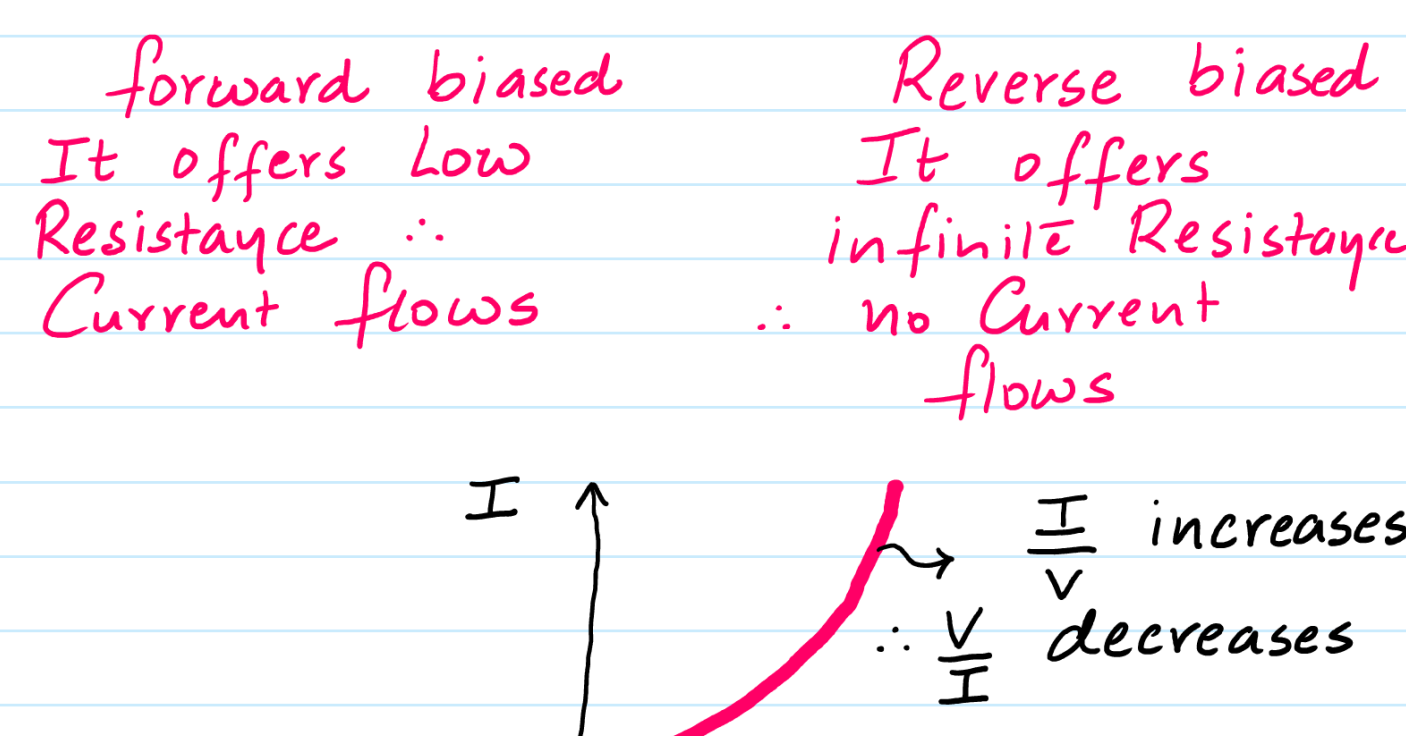 forward biased
It offers Low
Resistance ∴
Current flows
Reverse biased
It offers
infinite Resistance
∴ no Current
flows
I
I/V increases
∴ V/I decreases